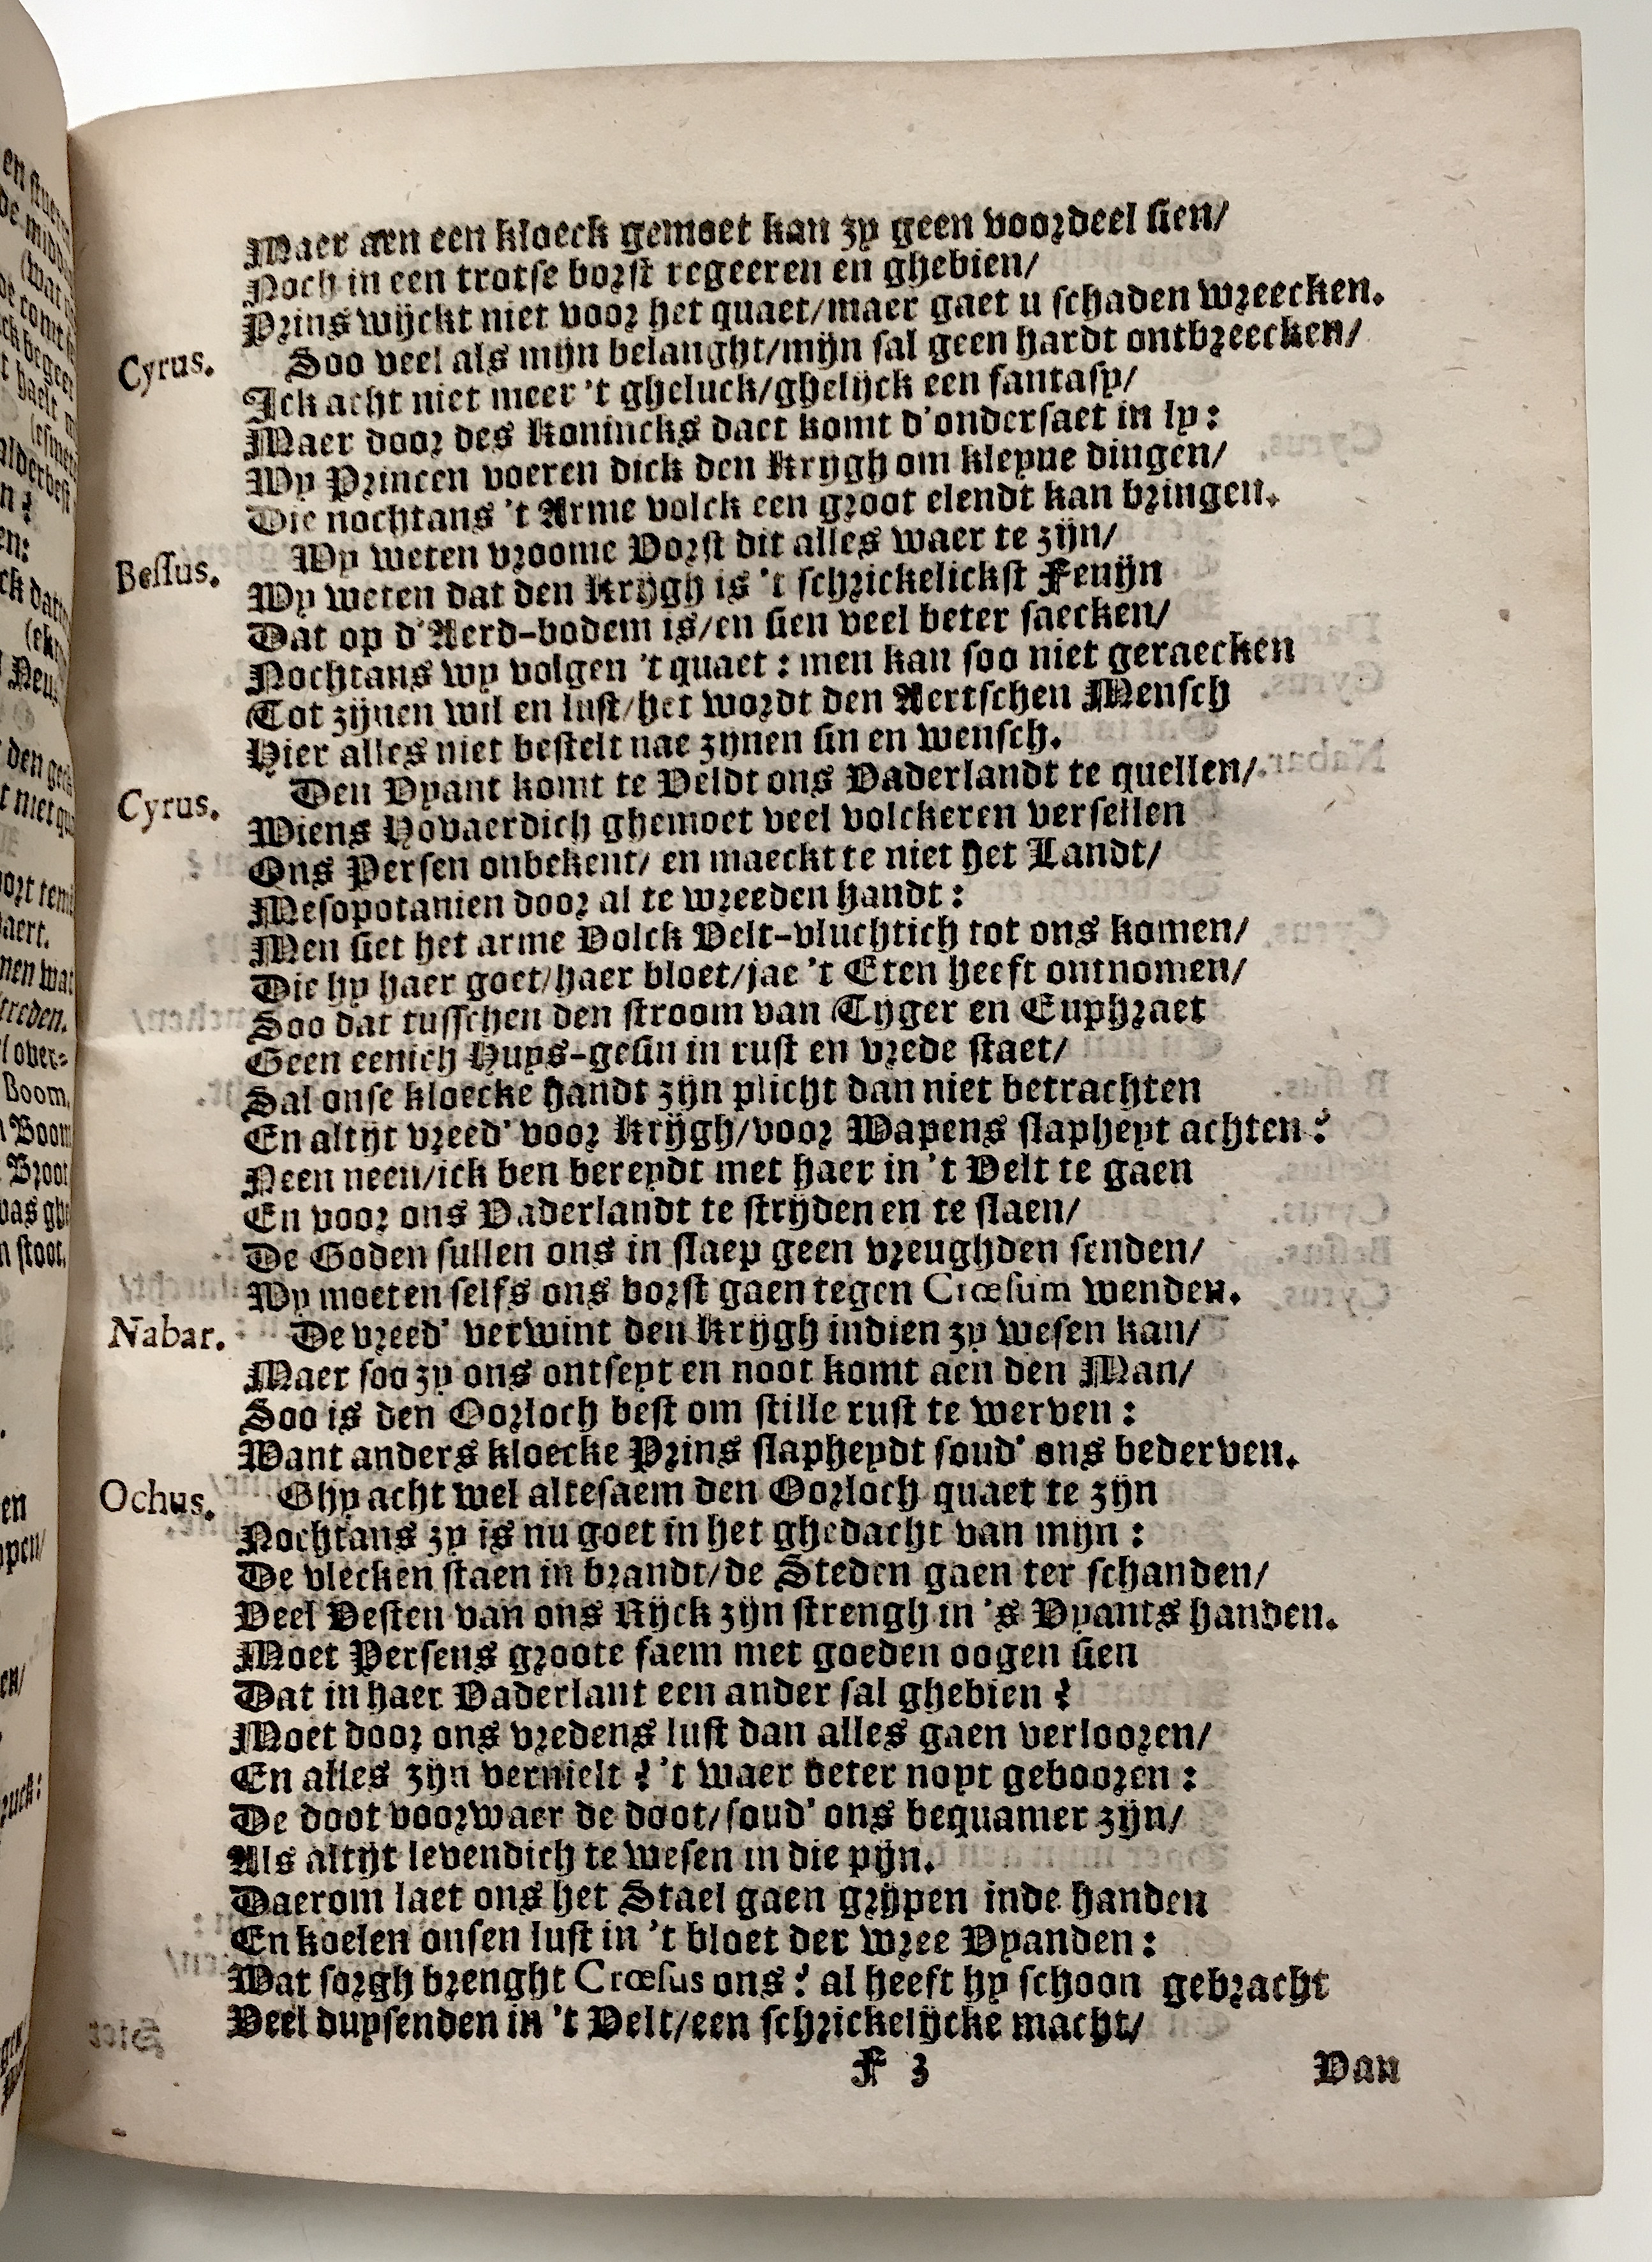 Maer aen een kloeck gemoet kan zy geen voordeel sien/
Noch in een trotse borst regeeren en ghebien/
Prins wijckt niet voor het quaet/maer gaet u schaden wreecken.
Cyrus. Soo veel als mijn belanght/mijn sal geen hardt ontbreecken/
Ick acht niet meer 't gheluck/ghelijck een fantasy/
Maer door des Konincks daet komt d'ondersaet in ly:
Wy Princen voeren dick den Krijgh om kleyne dingen/
Die nochtans 't Arme volck een groot elendt kan bringen.
Bessus. Wy weten vroome Vorst dit alles waer te zijn/
Wy weten dat den Krijgh is 't schrickelickst Fenijn
Dat op d'Aerd-bodem is/en sien veel beter saecken/
Nochtans wy volgen 't quaet: men kan soo niet geraecken
Tot zijnen wil en lust/het wordt den Aertschen Mensch
Hier alles niet bestelt nae zynen sin en wensch.
Cyrus. Den Vyant komt te Veldt ons Vaderlandt te quellen/
Wiens Hovaerdich ghemoet veel volckeren versellen
Ons Persen onbekent/ en maeckt te niet het Landt/
Mesopotanien door al te wreeden handt:
Men siet het arme Volck Velt-vluchtich tot ons komen/
Die hy haer goet/haer bloet/jae 't Eten heeft ontnomen/
Soo dat tusschen den stroom van Tijger en Euphraet
Geen eenich Huys-gesin in rust en vrede staet/
Sal onse kloecke handt zijn plicht dan niet betrachten
En altijt vreed' voor Krijgh/voor Wapens slapheyt achten?
Neen neen/ick ben bereydt met haer in 't Velt te gaen
En voor ons Vaderlandt te strijden en te slaen/
De Goden sullen ons in slaep geen vreughden senden/
Wy moeten selfs ons borst gaen tegen Crœsum wenden.
Nabar. De vreed' verwint den Krijgh indien zy wesen kan/
Maer soo zy ons ontseyt en noot komt aen den Man/
Soo is den Oorloch best om stille rust te werven:
Want anders kloecke Prins slapheydt soud' ons bederven.
Ochus. Ghy acht wel altesaem den Oorloch quaet te zijn
Nochtans zy is nu goet in het ghedacht van mijn:
De vlecken staen in brandt/de Steden gaen ter schanden/
Veel Vesten van ons Rijck zijn strengh in 's Vyants handen.
Moet Persens groote faem met goeden oogen sien
Dat in haer Vaderlant een ander sal ghebien?
Moet door ons vredens lust dan alles gaen verlooren/
En alles zijn vernielt? 't waer beter noyt gebooren:
De doot voorwaer de doot/soud' ons bequamer zijn/
Als altijt levendich te wesen in die pijn.
Daerom laet ons het Stael gaen grijpen inde handen
En koelen onsen lust in 't bloet der wree Vyanden:
Wat sorgh brenght Crœsus ons? al heeft hy schoon gebracht
Veel duysenden in 't Velt/een schrickelijcke macht/
F 3 Van